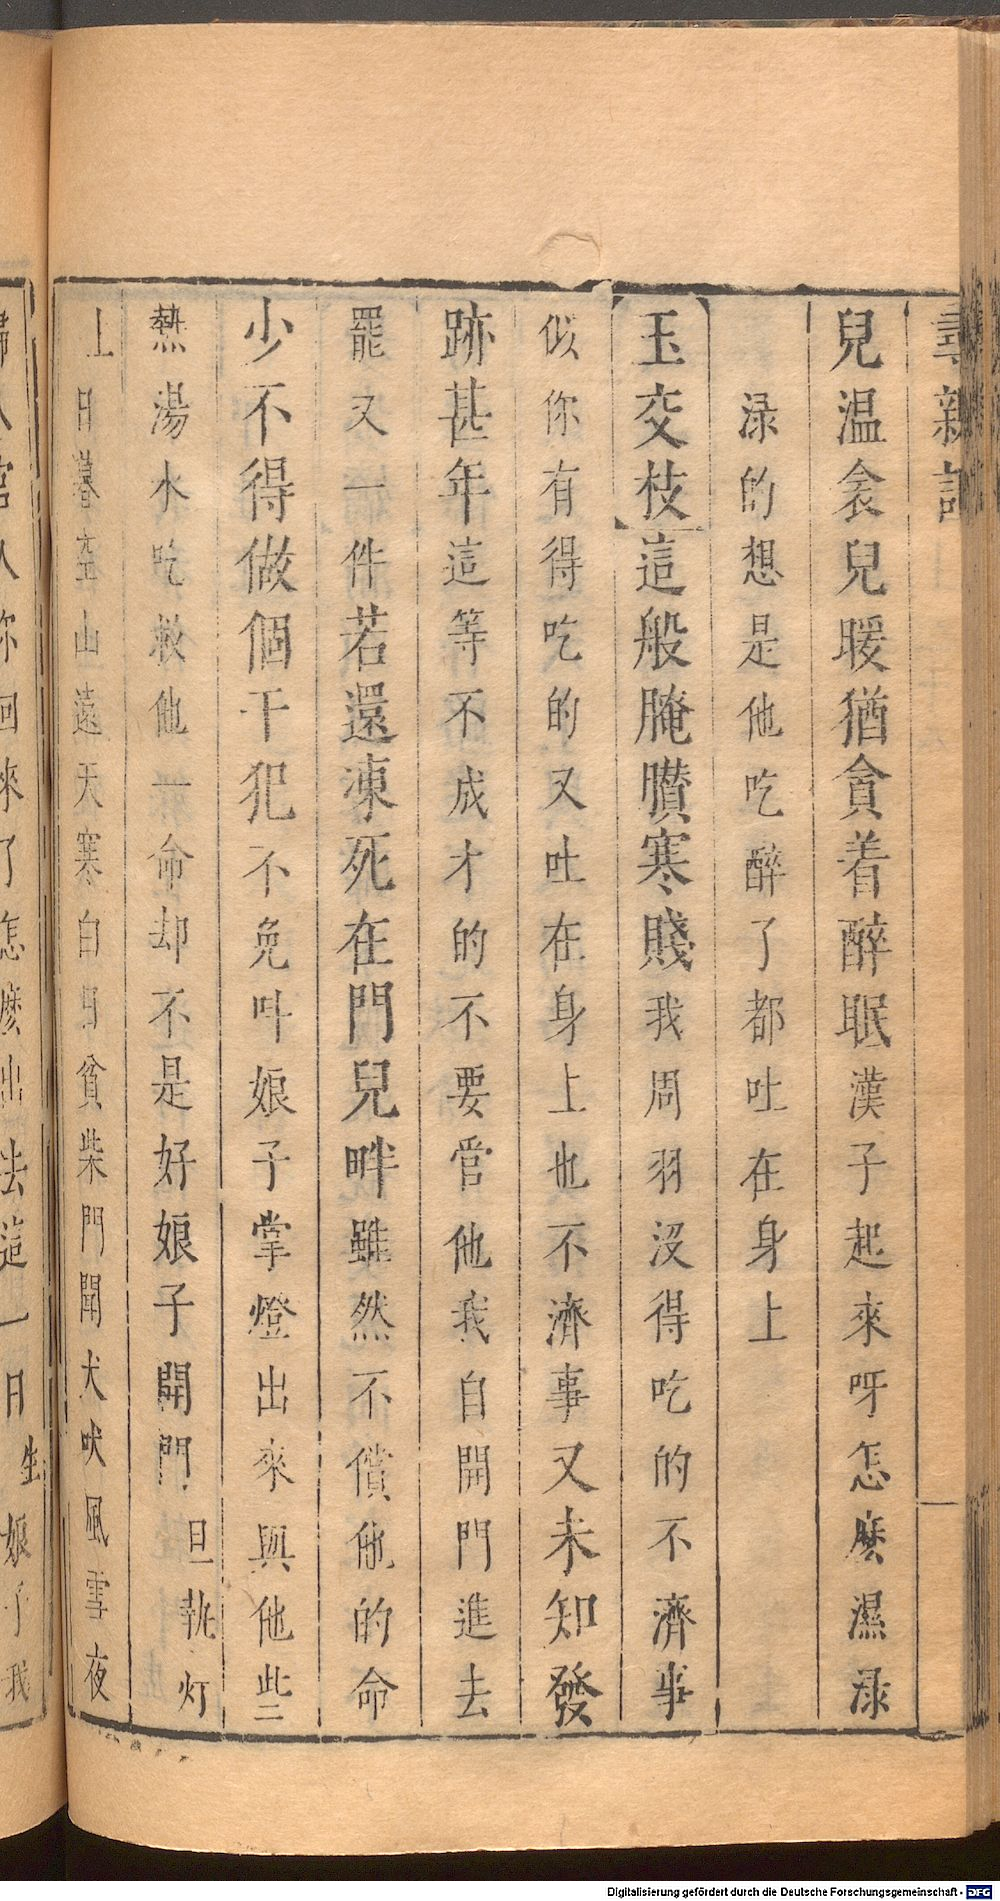 尋親記
兒温衾兒暖猶貪着醉眠漢子起來呀怎麽濕渌
渌的想是他吃醉了都吐在身上
玉交枝這般腌臢寒賤我周羽沒得吃的不濟事
似你有得吃的又吐在身上也不濟事又未知發
跡甚年這等不成才的不要管他我自開門進去
罷又一件若還凍死在門兒畔雖然不償他的命
少不得做個干犯不免叫娘子掌燈出來與他些
熱湯水吃救他一命却不是好娘子開門旦執灯
上日暮空山遠天寒白日貧柴門聞犬吠風雪夜
歸人官人你回來了怎麽出去這一日生娘子我
Digitalisierung gefördert durch die Deutsche Forschungsgemeinschaft - DFG